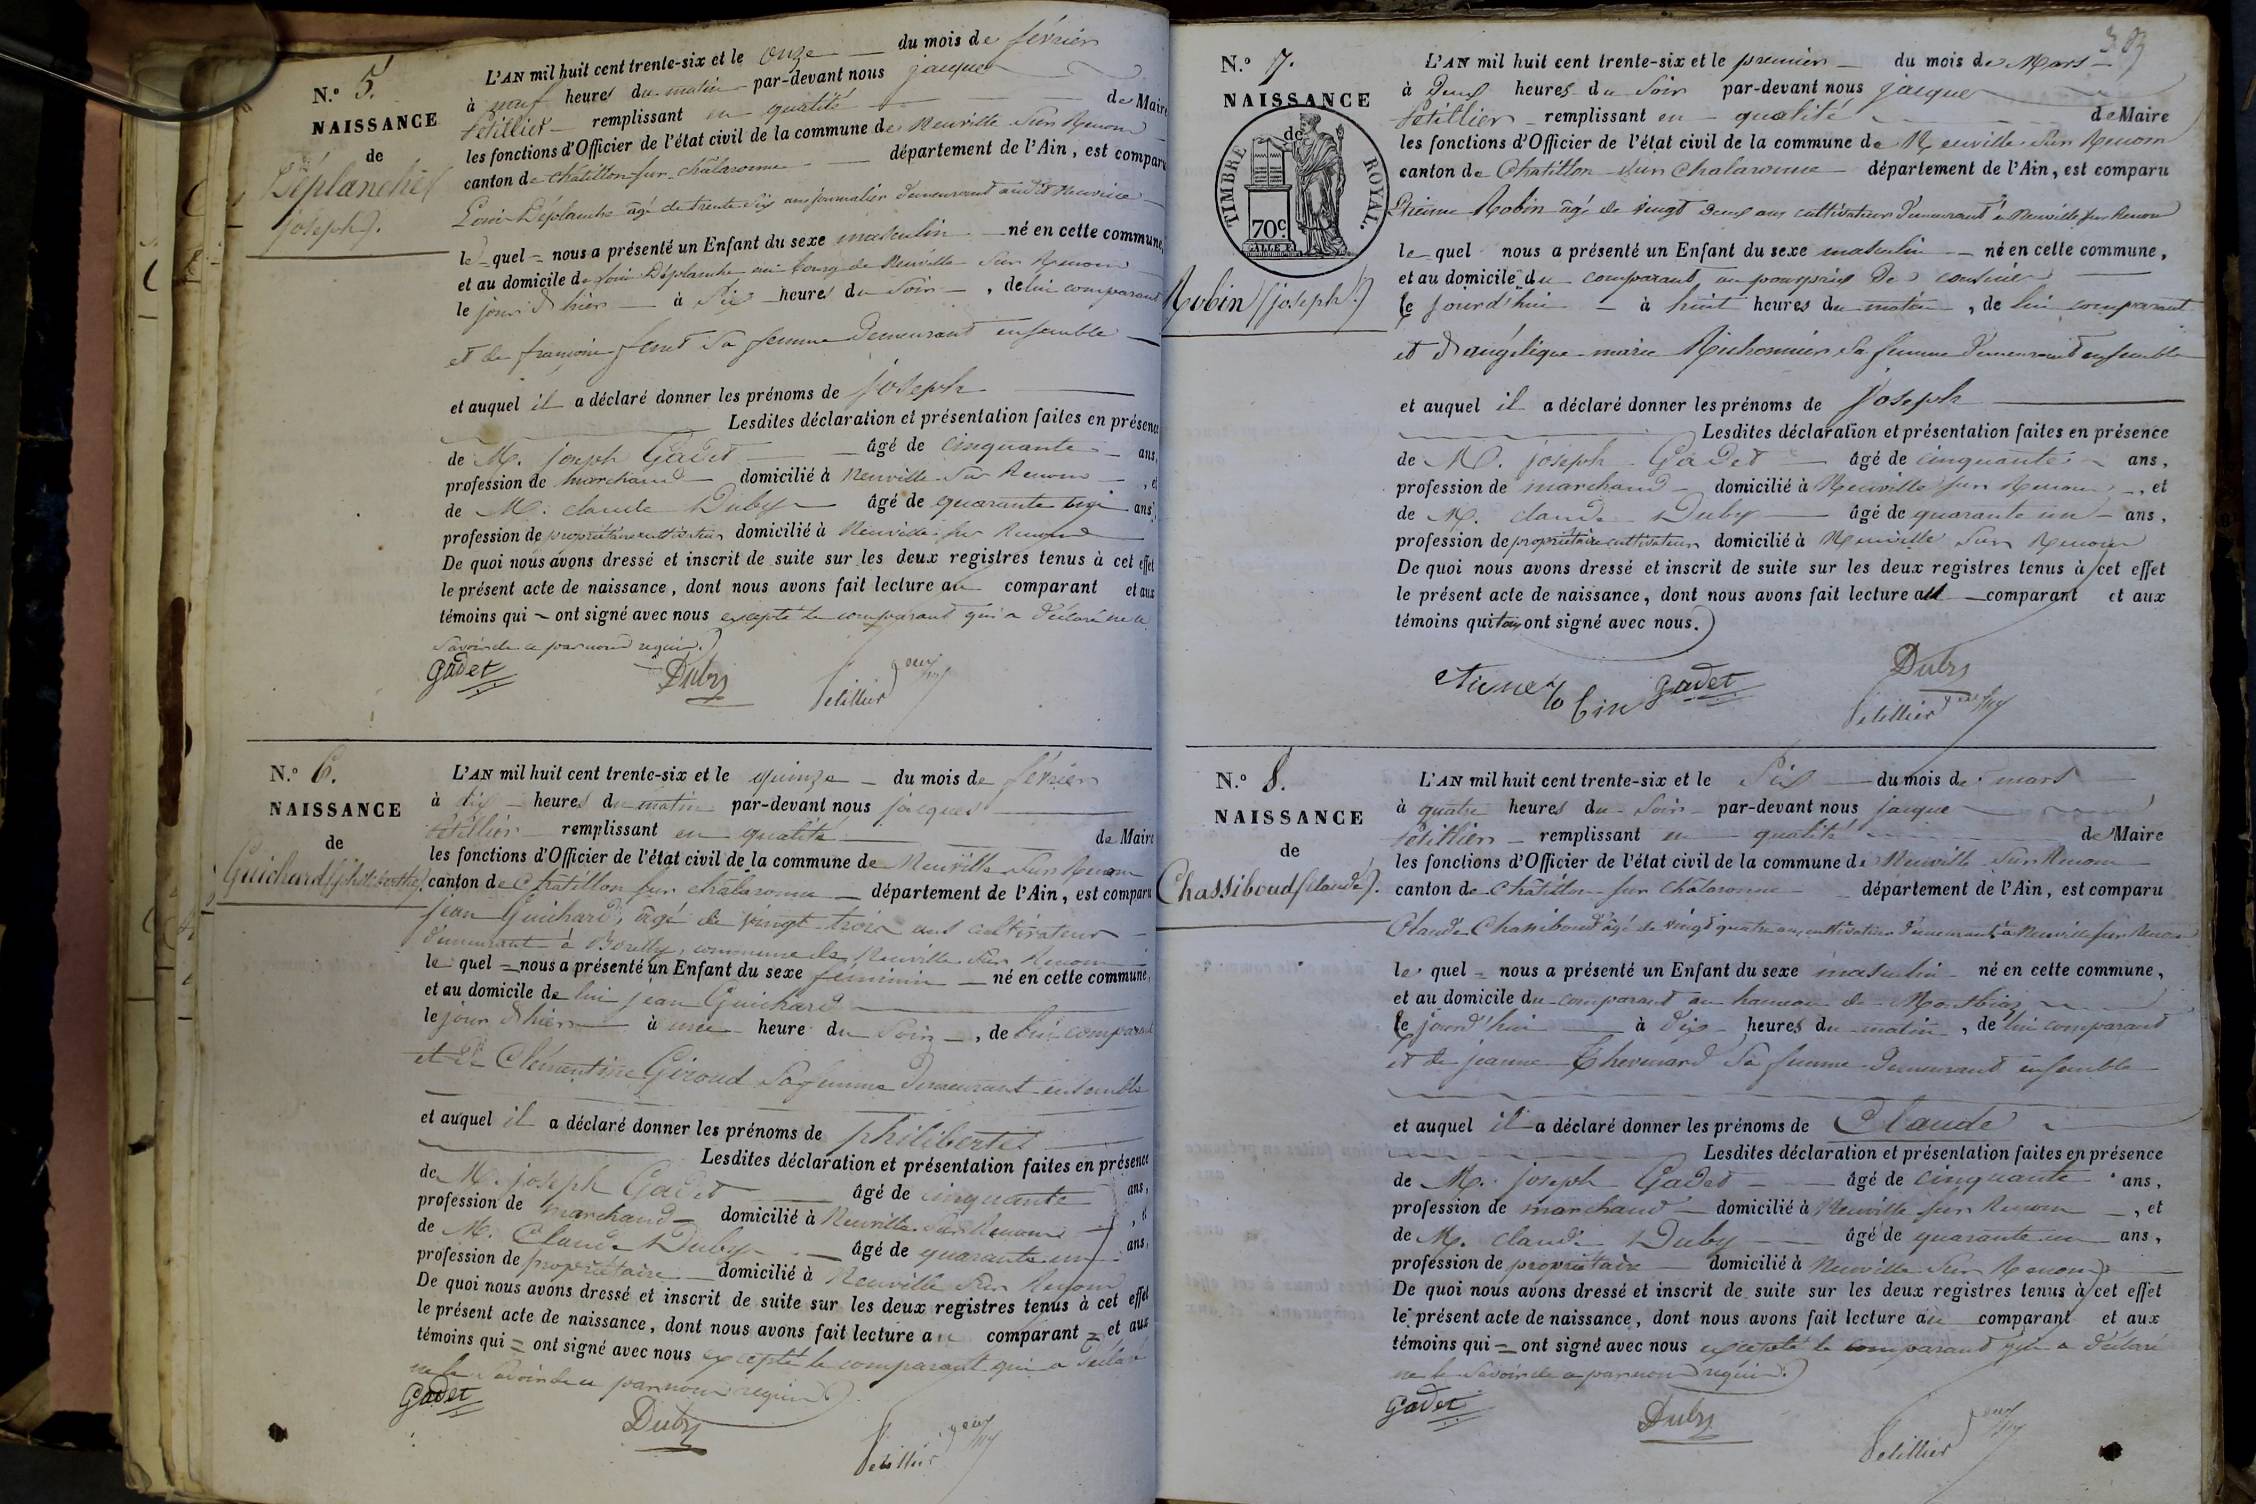 N.º 5.
NAISSANCE
de
Déplanche
(joseph).
L'AN mil huit cent trente-six et le onze du mois de février
à neuf heures du matin par-devant nous jacques
Pétillier remplissant en qualité de Maire
les fonctions d'Officier de l'état civil de la commune de Neuville sur Renom
canton de châtillon sur châlaronne département de l'Ain, est comparu
Louis Déplanche âgé de trente six ans journalier demeurant audit Neuville
le quel nous a présenté un Enfant du sexe masculin né en cette commune,
et au domicile de Louis Déplanche au bourg de Neuville sur Renom
le jour d'hier à six heures du soir, de lui comparant
et de françoise sa femme demeurant ensemble
et auquel il a déclaré donner les prénoms de joseph
Lesdites déclaration et présentation faites en présence
de M. joseph Gadet âgé de cinquante ans,
profession de marchand domicilié à Neuville sur Renom, et
de M. claude Duby âgé de quarante un ans,
profession de propriétaire cultivateur domicilié à Neuville sur Renom
De quoi nous avons dressé et inscrit de suite sur les deux registres tenus à cet effet
le présent acte de naissance, dont nous avons fait lecture au comparant et aux
témoins qui ont signé avec nous excepté le comparant qui a déclaré ne le
savoir de ce par nous requis.)
Gadet Duby Petillier
N.º 6.
NAISSANCE
de
Guichard (philiberthe)
L'AN mil huit cent trente-six et le quinze du mois de février
à dix heures du matin par-devant nous jacques
Pétillier remplissant en qualité de Maire
les fonctions d'Officier de l'état civil de la commune de Neuville sur Renom
canton de Châtillon sur châlaronne département de l'Ain, est comparu
jean Guichard, âgé de vingt trois ans cultivateur
demeurant à commune de Neuville sur Renom
le quel nous a présenté un Enfant du sexe féminin né en cette commune,
et au domicile de lui jean Guichard
le jour d'hier à une heure du soir, de lui comparant
et de Clémentine Giroud sa femme demeurant ensemble
et auquel il a déclaré donner les prénoms de philiberte
Lesdites déclaration et présentation faites en présence
de M. joseph Gadet âgé de cinquante ans,
profession de marchand domicilié à Neuville sur Renom, et
de M. Claude Duby âgé de quarante un ans,
profession de propriétaire domicilié à Neuville sur Renom
De quoi nous avons dressé et inscrit de suite sur les deux registres tenus à cet effet
le présent acte de naissance, dont nous avons fait lecture au comparant et aux
témoins qui ont signé avec nous excepté le comparant qui a déclaré
ne le savoir de ce par nous requis.)
Gadet Duby Petillier
N.º 7.
NAISSANCE
de
TIMBRE ROYAL.
70c.
Robin (joseph.)
L'AN mil huit cent trente-six et le premier du mois de Mars
à deux heures du soir par-devant nous jacques
Pétillier remplissant en qualité de Maire
les fonctions d'Officier de l'état civil de la commune de Neuville sur Renom
canton de Chatillon sur chalaronne département de l'Ain, est comparu
Etienne Robin âgé de vingt deux ans cultivateur demeurant à Neuville sur Renom
le quel nous a présenté un Enfant du sexe masculin né en cette commune,
et au domicile du comparant au
le jourd'hui à huit heures du matin, de lui comparant
et d'angélique marie sa femme demeurant ensemble
et auquel il a déclaré donner les prénoms de Joseph
Lesdites déclaration et présentation faites en présence
de M. joseph Gadet âgé de cinquante ans,
profession de marchand domicilié à Neuville sur Renom, et
de M. claude Duby âgé de quarante un ans,
profession de propriétaire cultivateur domicilié à Neuville sur Renom
De quoi nous avons dressé et inscrit de suite sur les deux registres tenus à cet effet
le présent acte de naissance, dont nous avons fait lecture au comparant et aux
témoins qui ont signé avec nous.)
etiene Robin Gadet Duby
Petillier
N.º 8.
NAISSANCE
de
Chassiboud (claude).
L'AN mil huit cent trente-six et le six du mois de mars
à quatre heures du soir par-devant nous jacques
Pétillier remplissant en qualité de Maire
les fonctions d'Officier de l'état civil de la commune de Neuville sur Renom
canton de châtillon sur châlaronne département de l'Ain, est comparu
Claude Chassiboud âgé de vingt quatre ans cultivateur demeurant à Neuville sur Renom
le quel nous a présenté un Enfant du sexe masculin né en cette commune,
et au domicile du comparant au hameau de
le jourd'hui à dix heures du matin, de lui comparant
et de jeanne Thevenard sa femme demeurant ensemble
et auquel il a déclaré donner les prénoms de Claude
Lesdites déclaration et présentation faites en présence
de M. joseph Gadet âgé de cinquante ans,
profession de marchand domicilié à Neuville sur Renom, et
de M. claude Duby âgé de quarante un ans,
profession de propriétaire domicilié à Neuville sur Renom
De quoi nous avons dressé et inscrit de suite sur les deux registres tenus à cet effet
le présent acte de naissance, dont nous avons fait lecture au comparant et aux
témoins qui ont signé avec nous excepté le comparant qui a déclaré
ne le savoir de ce par nous requis.)
Gadet Duby Petillier